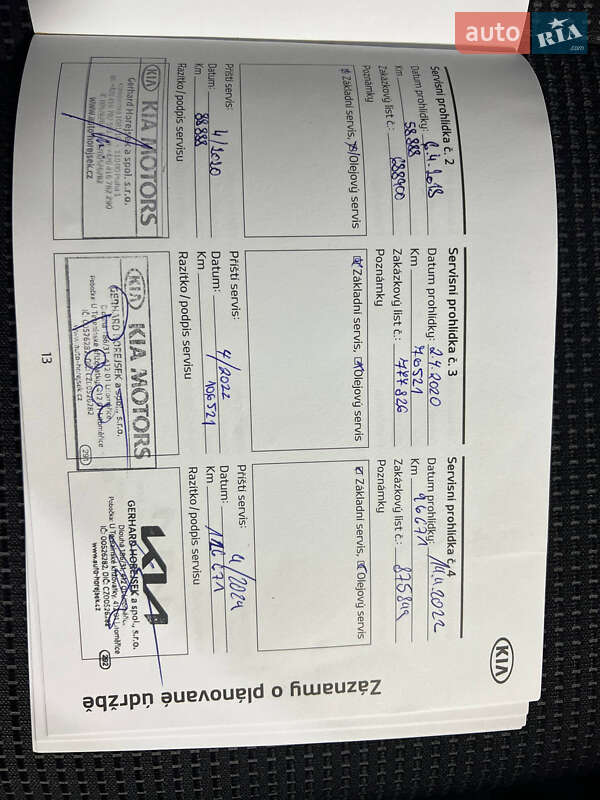 auto RIA.com
KIA
Záznamy o plánované údržbě
Servisní prohlídka č. 2
Datum prohlídky: 6.4.2018
Km 58.888
Zakázkový list č.: 688900
Poznámky
Základní servis, Olejový servis
Příští servis:
Datum: 4/2020
Km 88.888
Razítko/podpis servisu
KIA KIA MOTORS
Gerhard Horejsek a spol., s.r.o.
www.auto-horejsek.cz
Servisní prohlídka č. 3
Datum prohlídky: 2.4.2020
Km 76521
Zakázkový list č.: 777826
Poznámky
Základní servis, Olejový servis
Příští servis:
Datum: 4/2022
Km 106521
Razítko/podpis servisu
KIA KIA MOTORS
GERHARD HOREJSEK a spol., s.r.o.
www.auto-horejsek.cz
291
Servisní prohlídka č. 4
Datum prohlídky: 14.4.2022
Km 96671
Zakázkový list č.: 875844
Poznámky
Základní servis, Olejový servis
Příští servis:
Datum: 4/2024
Km 126671
Razítko/podpis servisu
KIA
GERHARD HOREJSEK a spol., s.r.o.
www.auto-horejsek.cz
292
13